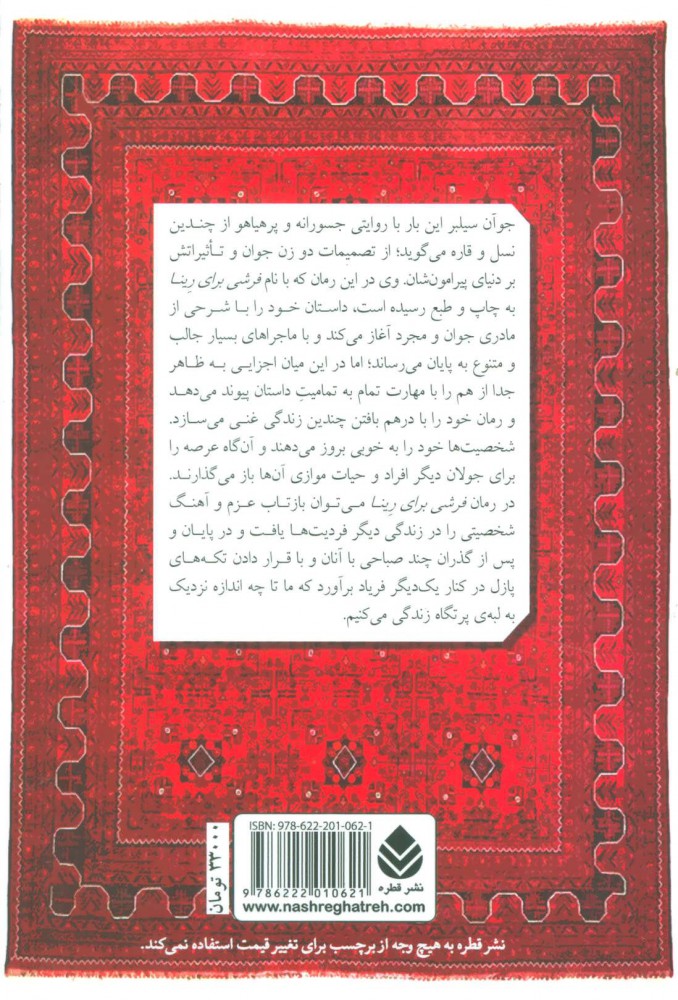 جوآن سیلبر این بار با روایتی جسورانه و پرهیاهو از چندین
نسل و قاره می‌گوید؛ از تصمیمات دو زن جوان و تأثیراتش
بر دنیای پیرامون‌شان. وی در این رمان که با نام فرشی برای رِینا
به چاپ و طبع رسیده است، داستان خود را با شرحی از
مادری جوان و مجرد آغاز می‌کند و با ماجراهای بسیار جالب
و متنوع به پایان می‌رساند؛ اما در این میان اجزایی به ظاهر
جدا از هم را با مهارت تمام به تمامیتِ داستان پیوند می‌دهد
و رمان خود را با درهم بافتن چندین زندگی غنی می‌سازد.
شخصیت‌ها خود را به خوبی بروز می‌دهند و آن‌گاه عرصه را
برای جولان دیگر افراد و حیات موازی آن‌ها باز می‌گذارند.
در رمان فرشی برای رِینا می‌توان بازتاب عزم و آهنگ
شخصیتی را در زندگی دیگر فردیت‌ها یافت و در پایان و
پس از گذران چند صباحی با آنان و با قرار دادن تکه‌های
پازل در کنار یک‌دیگر فریاد برآورد که ما تا چه اندازه نزدیک
به لبه‌ی پرتگاه زندگی می‌کنیم.
ISBN: 978-622-201-062-1
9 786222 010621
نشر قطره
www.nashreghatreh.com
۳۳۰۰۰ تومان
نشر قطره به هیچ وجه از برچسب برای تغییر قیمت استفاده نمی‌کند.